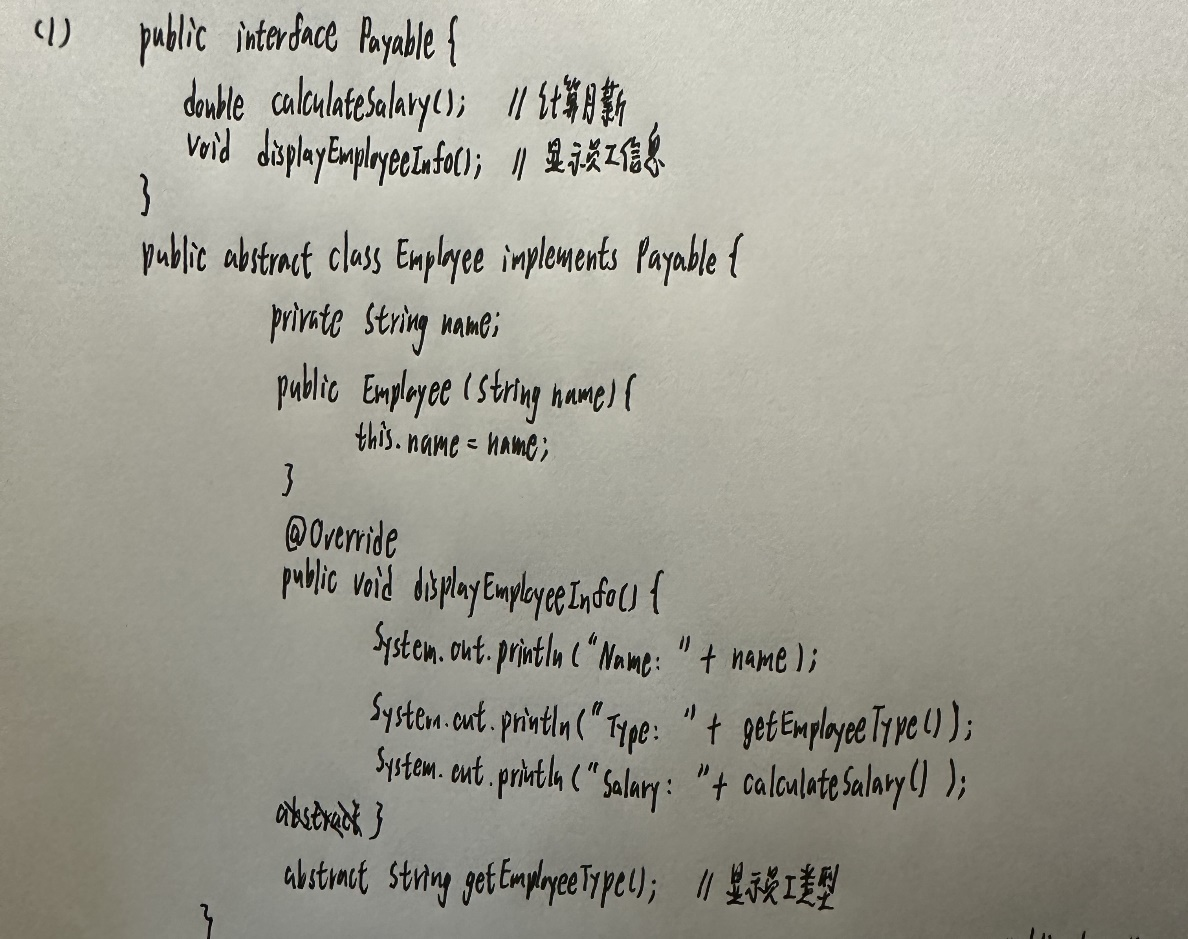 (1) public interface Payable {
double calculateSalary(); // 计算月薪
void displayEmployeeInfo(); // 显示员工信息
}
public abstract class Employee implements Payable {
private String name;
public Employee (String name) {
this.name = name;
}
@Override
public void displayEmployeeInfo() {
System.out.println ("Name: " + name);
System.out.println ("Type: " + getEmployeeType());
System.out.println ("Salary: " + calculateSalary() );
}
abstract String getEmployeeType(); // 显示员工类型
}